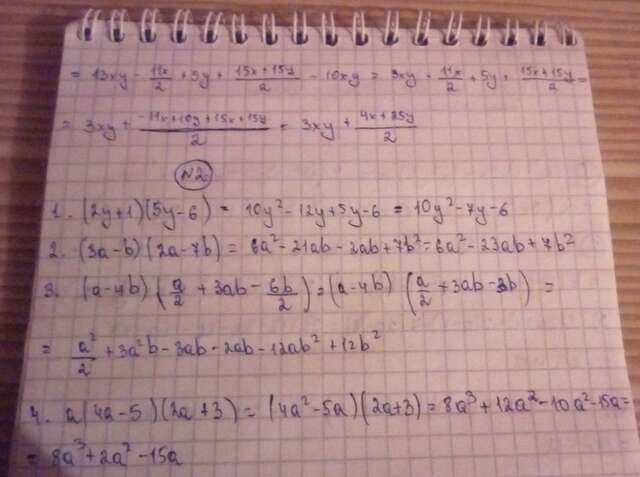 = 13xy - 11x/2 + 5y + (15x+15y)/2 - 10xy = 3xy - 11x/2 + 5y + (15x+15y)/2 =
= 3xy + (-11x+10y+15x+15y)/2 = 3xy + (4x+25y)/2
N2.
1. (2y+1)(5y-6) = 10y²-12y+5y-6 = 10y²-7y-6
2. (3a-b)(2a-7b) = 6a²-21ab-2ab+7b²=6a²-23ab+7b²
3. (a-4b)(a/2 + 3ab - 6b/2) = (a-4b)(a/2 + 3ab - 3b) =
= a²/2 + 3a²b - 3ab - 2ab - 12ab² + 12b²
4. a(4a-5)(2a+3) = (4a²-5a)(2a+3) = 8a³+12a²-10a²-15a=
= 8a³+2a²-15a